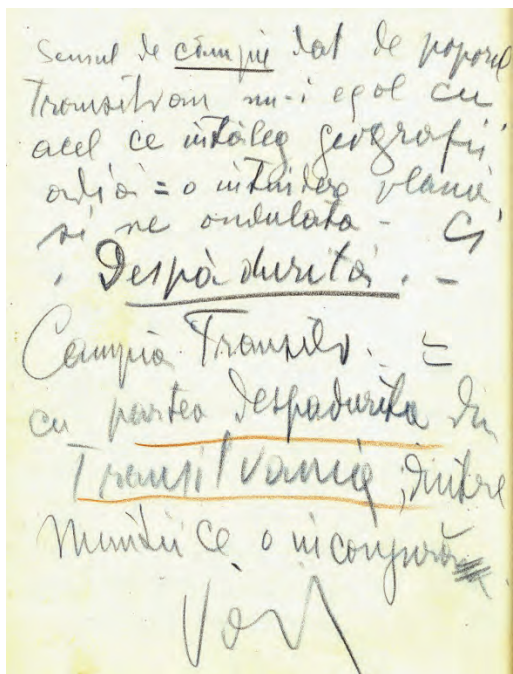 Sensul de câmpie dat de poporul
Transilvan nu-i egal cu
acel ce înțăleg geografii
= o întindere plană
și ne ondulată - Ci
. Despădurită. -
Câmpia Transilv. =
cu partea despădurită din
Transilvania, dintre
Munții ce o inconjură